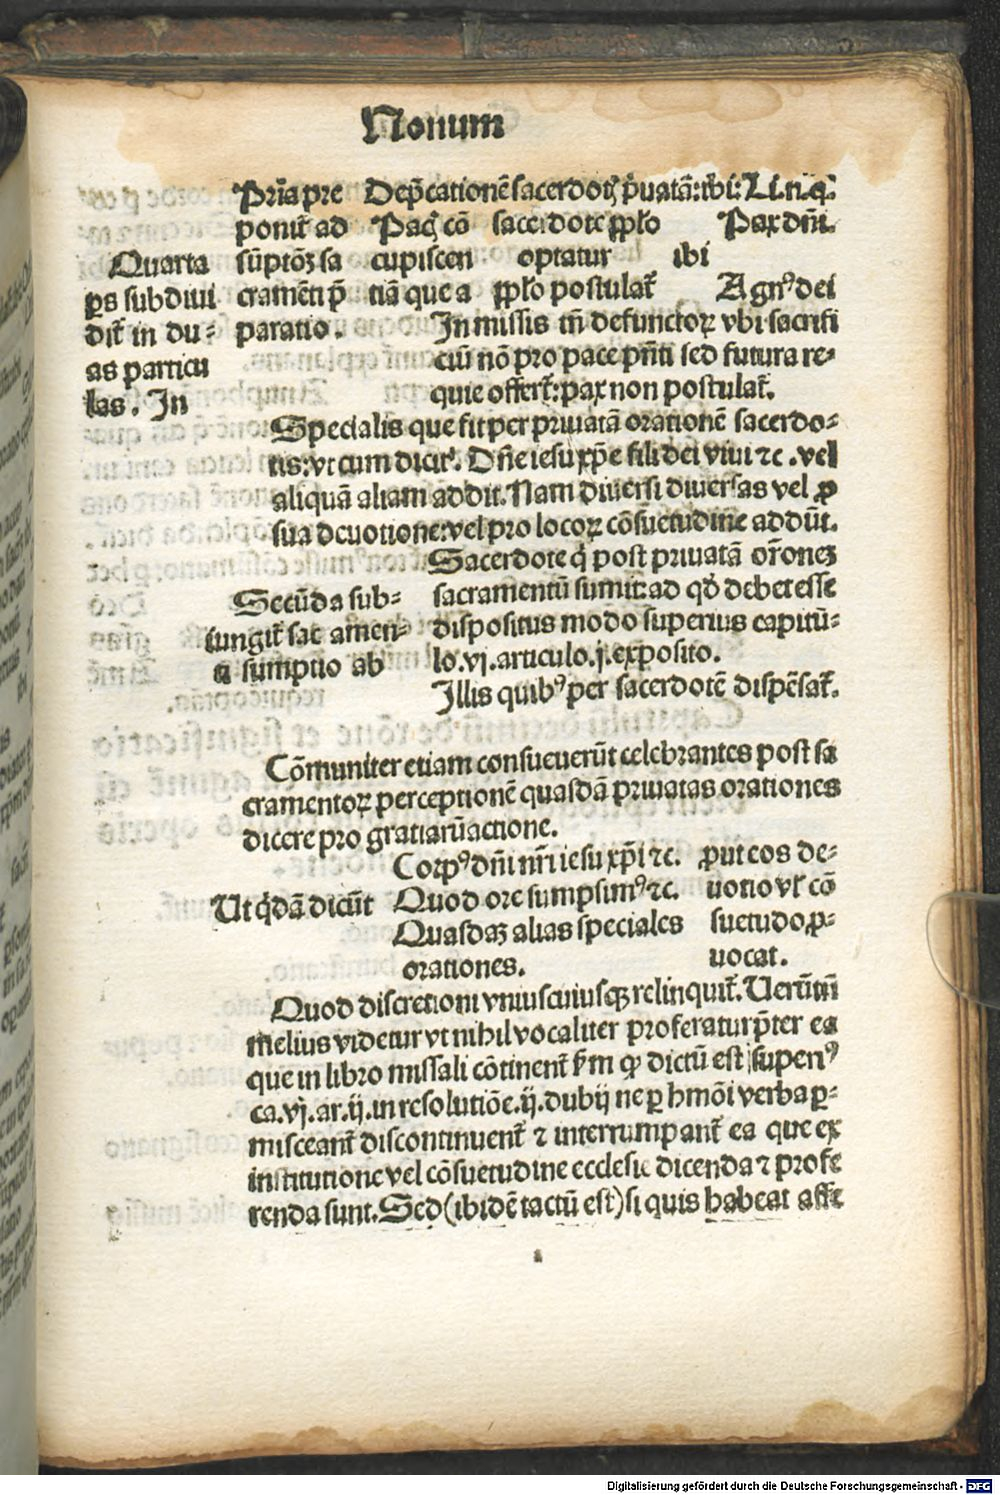 Nonum
Quarta
ps subdiui
dit̄ in du-
as particu
las. In
Prīa pre
ponit̄ ad
sūptōꝫ sa
cramēti p̄
paratio.
Dep̄cationē sacerdotꝭ p̄uatā: ibi: Li. n. q̄.
Paqꝫ cō
cupiscen
tiā que a
sacerdote pplo
optatur ibi
pplo postulat̄
Pax dn̄i.
Agnꝰ dei
In missis tn̄ defunctoꝝ vbi sacrifi
ciū nō pro pace pn̄ti sed futura re-
quie offert̄: pax non postulat̄.
Specialis que fit per priuatā orationē sacerdo-
tis: vt cum dicit̄. Dn̄e iesu xp̄e fili dei viui ⁊c. vel
aliquā aliam addit. Nam diuersi diuersas vel ꝓ
sua deuotione: vel pro locoꝝ cōsuetudine addūt.
Secūda sub-
iungit̄ sac̄ amen-
ti sumptio ab
Sacerdote q̄ post priuatā or̄oneꝫ
sacramentū sumit: ad qd̄ debet esse
dispositus modo superius capitu-
lo. vj. articulo. j. exposito.
Illis quibꝰ per sacerdotē dispēsat̄.
Cōmuniter etiam consueuerūt celebrantes post sa
cramentoꝝ perceptionē quasdā priuatas orationes
dicere pro gratiarū actione.
Ut qdā dicūt
Corpꝰ dn̄i nr̄i iesu xp̄i ⁊c.
Quod ore sumpsimꝰ ⁊c.
Quasdaꝫ alias speciales
orationes.
ꝓut eos de-
uotio vl̄ cō
suetudo ꝓ-
uocat.
Quod discretioni vniuscuiusqꝫ relinquit̄. Uerūtn̄
melius videtur vt nihil vocaliter proferatur p̄ter ea
que in libro missali cōtinent̄ sm̄ ꝙ dictū est superiꝰ
ca. vj. ar. ij. in resolutiōe. ij. dubij ne ꝑ hmōi verba ꝑ-
misceant̄ discontinuent̄ ⁊ interrumpant̄ ea que ex
institutione vel cōsuetudine ecclesie dicenda ⁊ profe
renda sunt. Sed (ibidē tactū est) si quis habeat affe
Digitalisierung gefördert durch die Deutsche Forschungsgemeinschaft - DFG